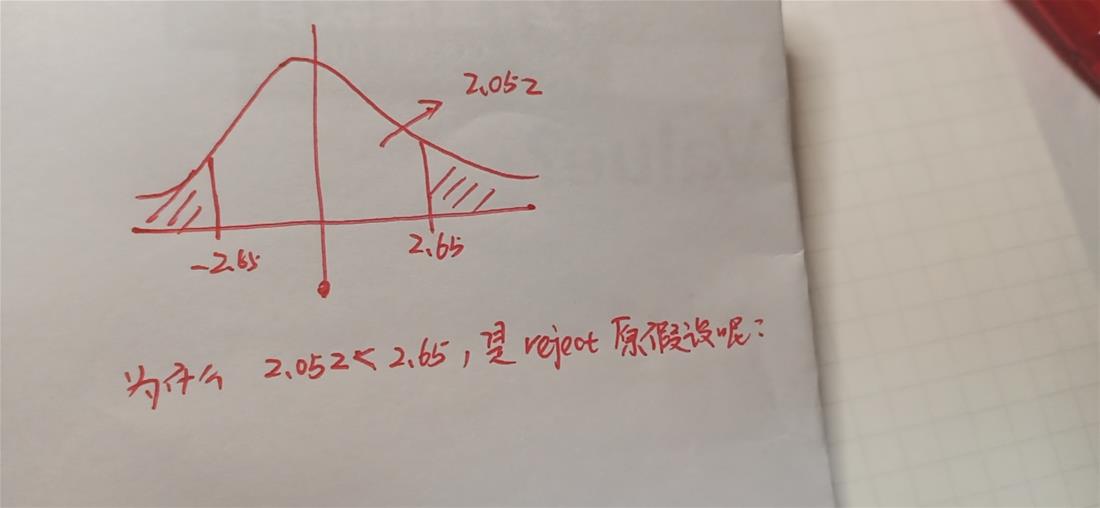 2.052
-2.65
2.65
为什么 2.052<2.65,是reject原假设呢?